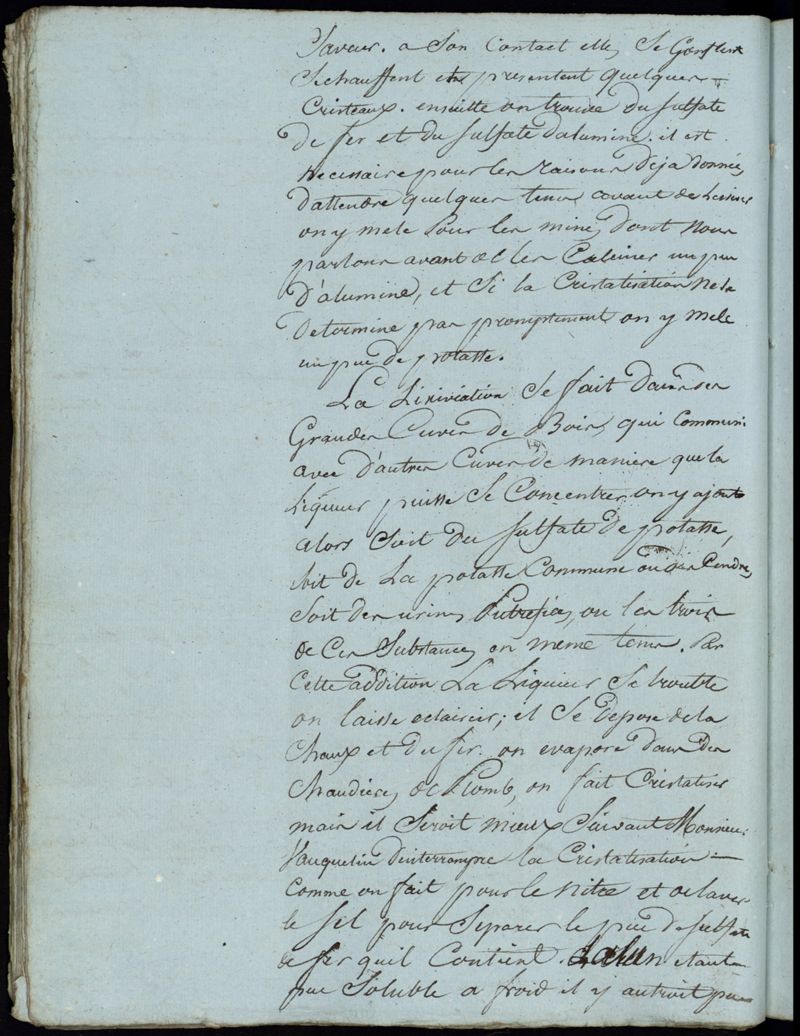 Saveur. a Son Contact elles Se Gonflent
Sechauffent et presentent quelques
Cristeaux. ensuitte on trouve du sulfate
de fer et du sulfate dalumine. il est
necessaire pour les raisons deja données
dattendre quelques tems avant de Lessiver
on y mele Pour les mines dont nous
parlons avant de les Calciner un peu
D'alumine, et Si la Cristalisation ne se
Determine pas promptement on y mele
un peu de potasse.
La Lixiviation Se fait dans des
Grandes Cuves de Bois, qui Communi:
avec d'autres Cuves de maniere que la
Liqueur puisse Se Concentrer. on y ajoute
alors Soit du sulfate de potasse,
soit de La potasse Commune ou des Cendres,
Soit des urines Putrefiés, ou les trois
de Ces Substances en meme tems. Par
Cette addition La Liqueur Se trouble
on laisse eclaircir; il Se depose de la
Chaux et du fer. on evapore dans des
Chaudieres de Plomb, on fait Cristaliser
mais il Seroit mieux Suivant Monsieur
Vauquelin d'interrompre la Cristalisation
Comme on fait pour le Nitre et de laver
le Sel pour Separer le peu de sulfate
de fer quil Contient. Lalun etant
peu Soluble a froid il y auroit peu